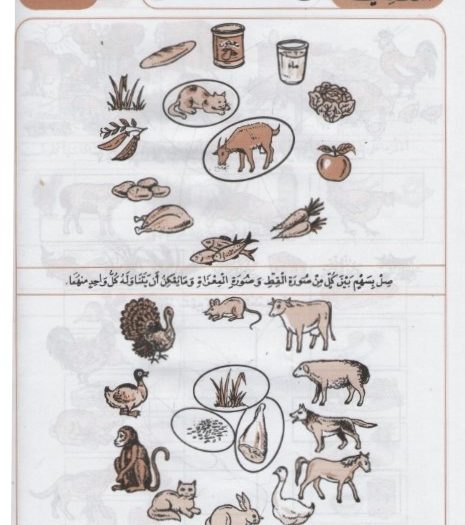 صِلْ بِسَهْمٍ بَيْنَ كُلٍّ مِنْ صُورَةِ الْقِطِّ وَ صُورَةِ الْمِعْزَاةِ وَمَا يُمْكِنُ أَنْ يَتَنَاوَلَهُ كُلُّ وَاحِدٍ مِنْهُمَا.